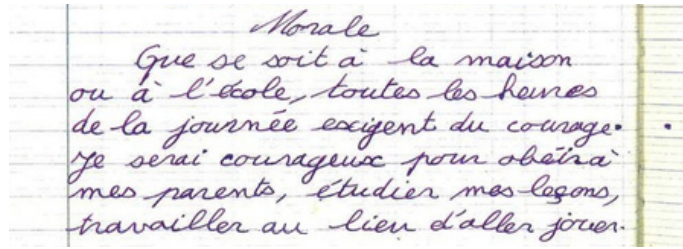 Morale
Que se soit à la maison
ou à l'école, toutes les heures
de la journée exigent du courage.
Je serai courageux pour obéir à
mes parents, étudier mes leçons,
travailler au lieu d'aller jouer.